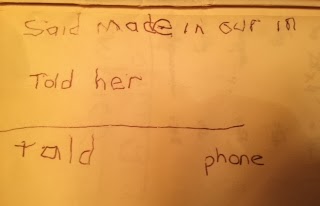 Said made in our in
Told her
told phone